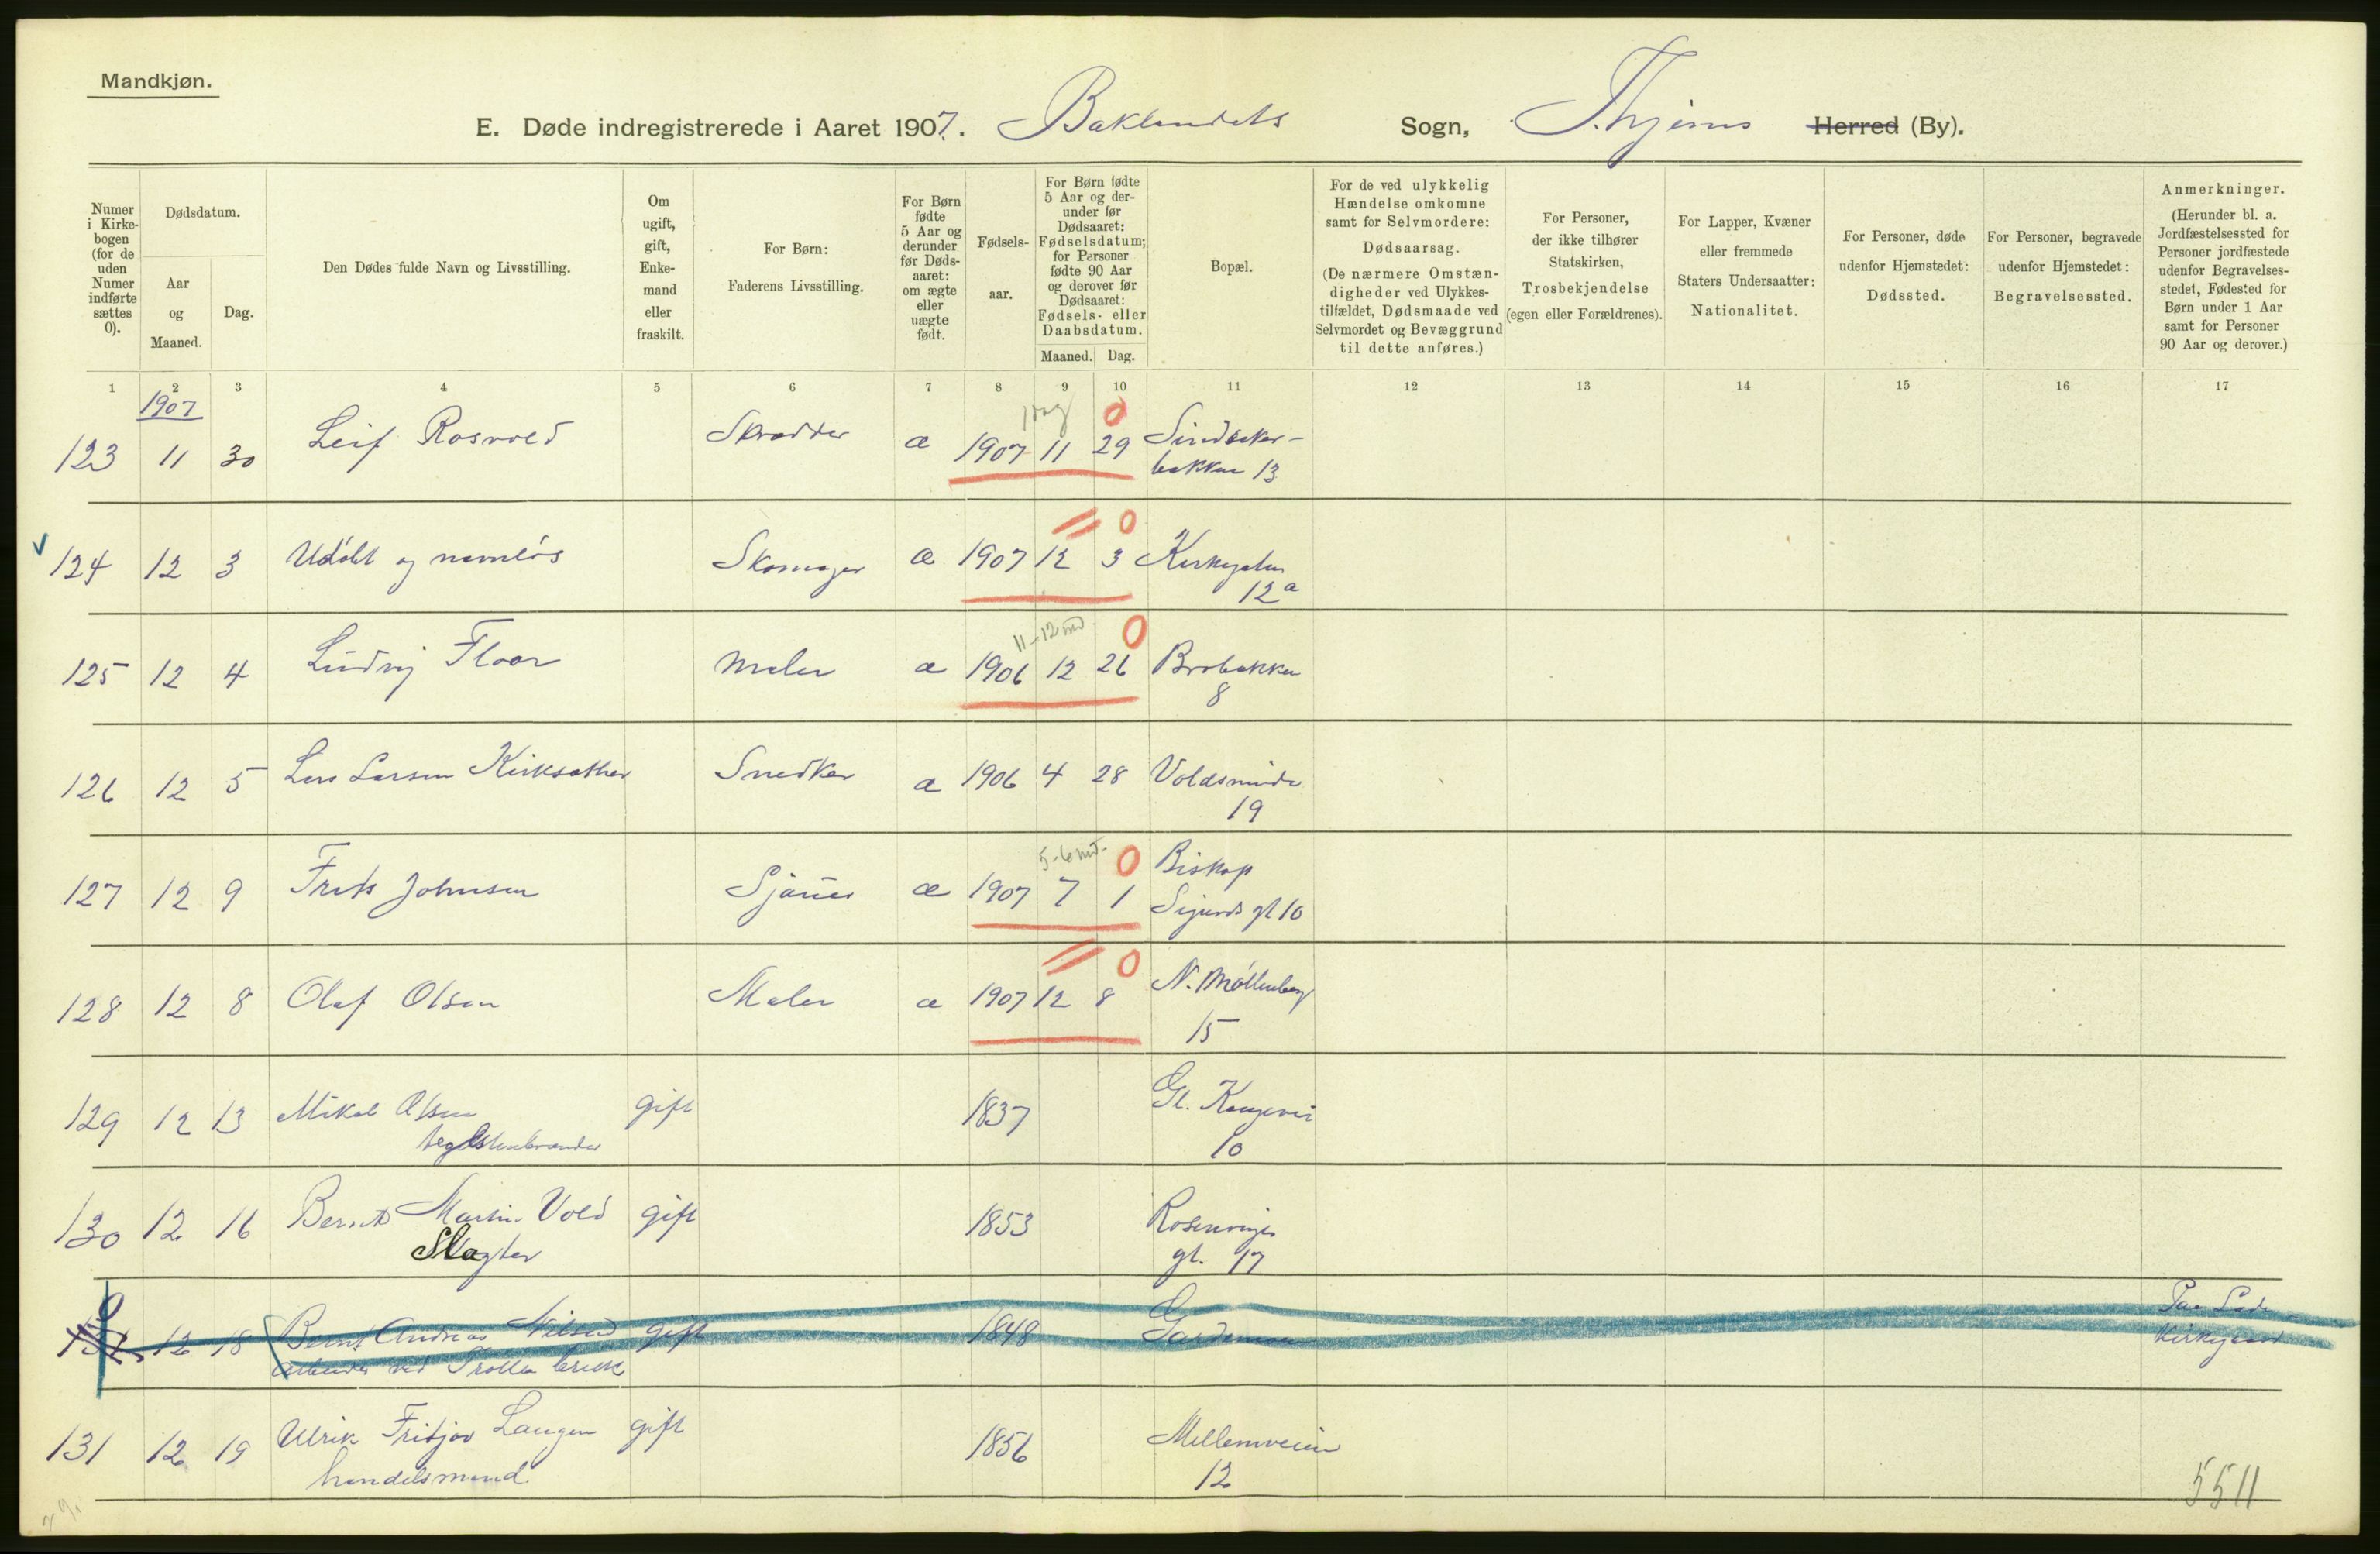 Mandkjøn.
E. Døde indregistrerede i Aaret 1907. Baklandets Sogn, Thjems Herred (By).
Numer i Kirke-bogen (for de uden Numer indførte sættes 0).
Dødsdatum.
Aar og Maaned.
Dag.
Den Dødes fulde Navn og Livsstilling.
Om ugift, gift, Enke-mand eller fraskilt.
For Børn: Faderens Livsstilling.
For Børn fødte 5 Aar og derunder før Døds-aaret: om ægte eller uægte født.
Fødsels-aar.
For Børn fødte 5 Aar og der-under før Dødsaaret: Fødselsdatum; for Personer fødte 90 Aar og derover før Dødsaaret: Fødsels- eller Daabsdatum.
Maaned. Dag.
Bopæl.
For de ved ulykkelig Hændelse omkomne samt for Selvmordere: Dødsaarsag. (De nærmere Omstæn-digheder ved Ulykkes-tilfældet, Dødsmaade ved Selvmordet og Bevæggrund til dette anføres.)
For Personer, der ikke tilhører Statskirken, Trosbekjendelse (egen eller Forældrenes).
For Lapper, Kvæner eller fremmede Staters Undersaatter: Nationalitet.
For Personer, døde udenfor Hjemstedet: Dødssted.
For Personer, begravede udenfor Hjemstedet: Begravelsessted.
Anmerkninger. (Herunder bl. a. Jordfæstelsessted for Personer jordfæstede udenfor Begravelses-stedet, Fødested for Børn under 1 Aar samt for Personer 90 Aar og derover.)
1 2 3 4 5 6 7 8 9 10 11 12 13 14 15 16 17
1907
1 dag 0
123 11 30 Leif Rosvold Skrædder æ 1907 11 29 Sindsaker-
bakken 13
0
124 12 3 Udøbt og navnløs Skomager æ 1907 12 3 Kirkegaten
12a
11-12 md 0
125 12 4 Ludvig Floor Maler æ 1906 12 26 Brobakken
8
126 12 5 Lars Larsen Kirksæther Snedker æ 1906 4 28 Voldsminde
19
5-6 md. 0
127 12 9 Frits Johnsen Sjauer æ 1907 7 1 Biskop
Sigurds gt 10
0
128 12 8 Olaf Olsen Maler æ 1907 12 8 N. Møllenberg
15
129 12 13 Mikal Olsen gift 1837 Gl. Kongevei
teglstenbrænder 10
130 12 16 Bernt Martin Vold gift 1853 Rosenvinges
Slagter gt. 17
0
131 12 18 Bernt Andreas Nilsen gift 1848 Paa Lade
arbeider ved Trolla bruk Kirkegaard
131 12 19 Ulrik Fritjov Langen gift 1856 Mellemveien
handelsmand 12
5511